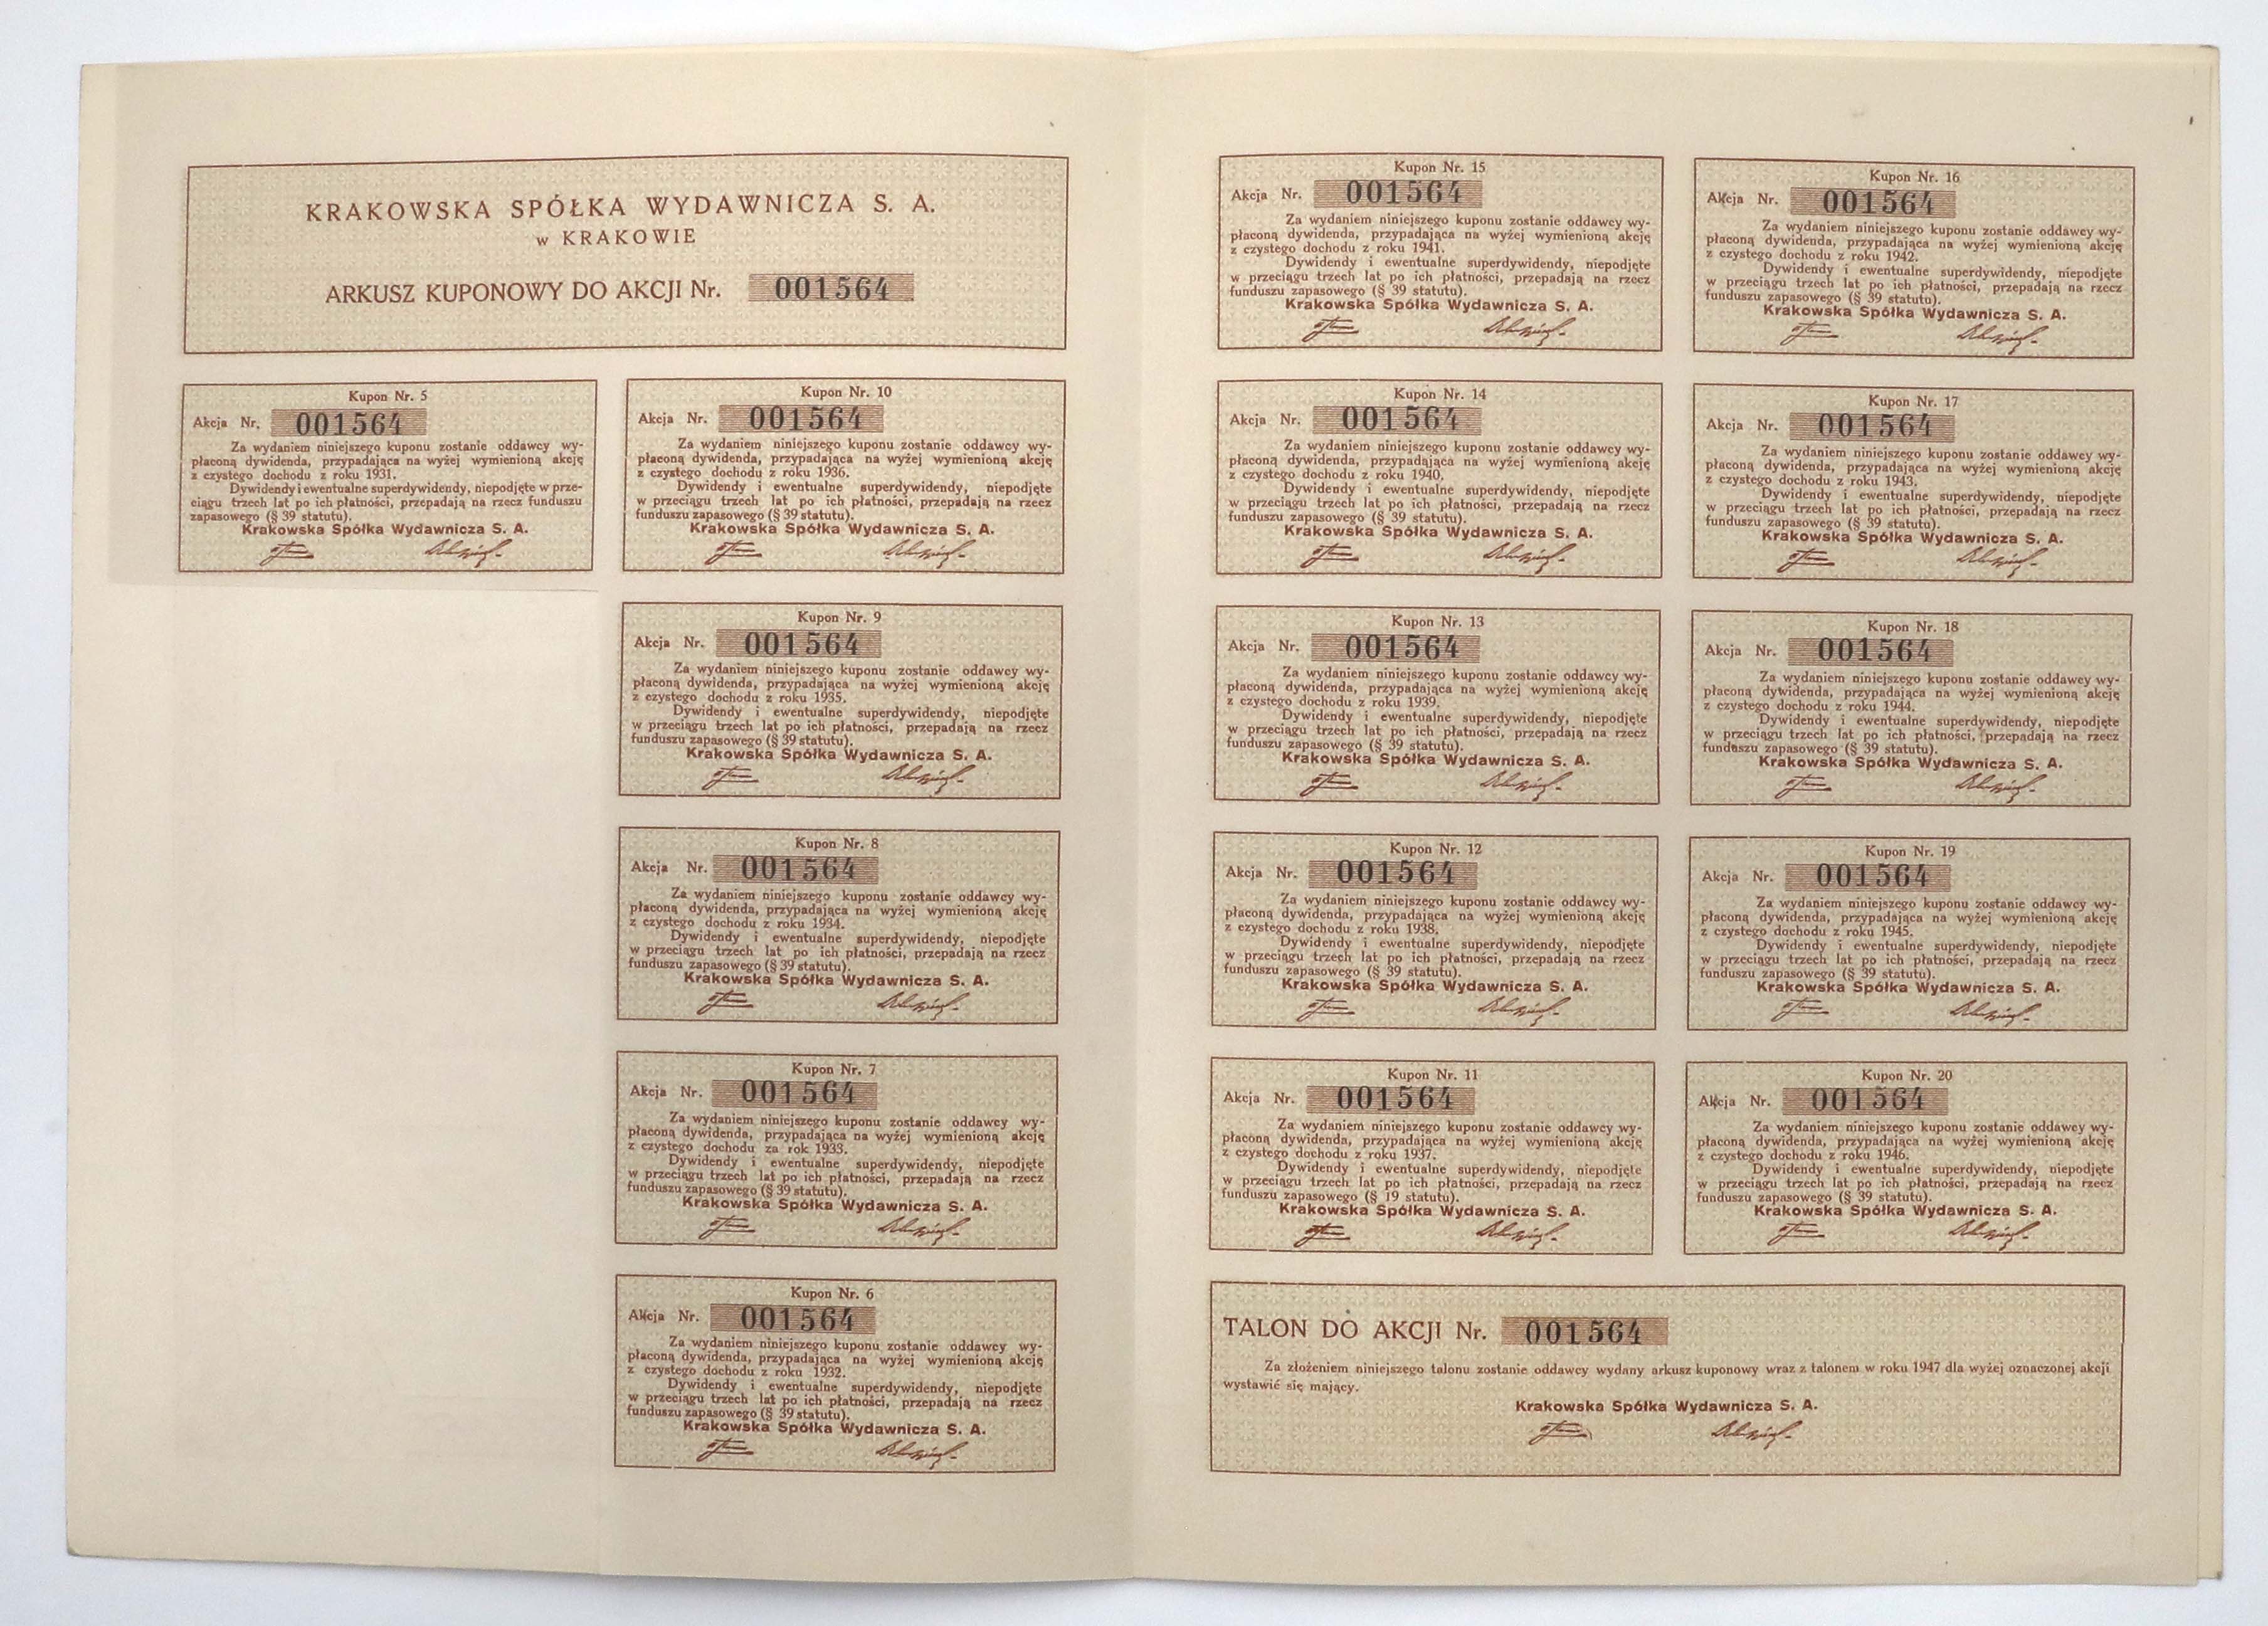 KRAKOWSKA SPÓŁKA WYDAWNICZA S. A.
w KRAKOWIE
ARKUSZ KUPONOWY DO AKCJI Nr. 001564
Kupon Nr. 5
Akcja Nr. 001564
Za wydaniem niniejszego kuponu zostanie oddawcy wy-
płaconą dywidenda, przypadająca na wyżej wymienioną akcję
z czystego dochodu z roku 1931.
Dywidendy i ewentualne superdywidendy, niepodjęte w prze-
ciągu trzech lat po ich płatności, przepadają na rzecz funduszu
zapasowego (§ 39 statutu).
Krakowska Spółka Wydawnicza S. A.
Kupon Nr. 10
Akcja Nr. 001564
Za wydaniem niniejszego kuponu zostanie oddawcy wy-
płaconą dywidenda, przypadająca na wyżej wymienioną akcję
z czystego dochodu z roku 1936.
Dywidendy i ewentualne superdywidendy, niepodjęte
w przeciągu trzech lat po ich płatności, przepadają na rzecz
funduszu zapasowego (§ 39 statutu).
Krakowska Spółka Wydawnicza S. A.
Kupon Nr. 9
Akcja Nr. 001564
Za wydaniem niniejszego kuponu zostanie oddawcy wy-
płaconą dywidenda, przypadająca na wyżej wymienioną akcję
z czystego dochodu z roku 1935.
Dywidendy i ewentualne superdywidendy, niepodjęte
w przeciągu trzech lat po ich płatności, przepadają na rzecz
funduszu zapasowego (§ 39 statutu).
Krakowska Spółka Wydawnicza S. A.
Kupon Nr. 8
Akcja Nr. 001564
Za wydaniem niniejszego kuponu zostanie oddawcy wy-
płaconą dywidenda, przypadająca na wyżej wymienioną akcję
z czystego dochodu z roku 1934.
Dywidendy i ewentualne superdywidendy, niepodjęte
w przeciągu trzech lat po ich płatności, przepadają na rzecz
funduszu zapasowego (§ 39 statutu).
Krakowska Spółka Wydawnicza S. A.
Kupon Nr. 7
Akcja Nr. 001564
Za wydaniem niniejszego kuponu zostanie oddawcy wy-
płaconą dywidenda, przypadająca na wyżej wymienioną akcję
z czystego dochodu za rok 1933.
Dywidendy i ewentualne superdywidendy, niepodjęte
w przeciągu trzech lat po ich płatności, przepadają na rzecz
funduszu zapasowego (§ 39 statutu).
Krakowska Spółka Wydawnicza S. A.
Kupon Nr. 6
Akcja Nr. 001564
Za wydaniem niniejszego kuponu zostanie oddawcy wy-
płaconą dywidenda, przypadająca na wyżej wymienioną akcję
z czystego dochodu z roku 1932.
Dywidendy i ewentualne superdywidendy, niepodjęte
w przeciągu trzech lat po ich płatności, przepadają na rzecz
funduszu zapasowego (§ 39 statutu).
Krakowska Spółka Wydawnicza S. A.
Kupon Nr. 15
Akcja Nr. 001564
Za wydaniem niniejszego kuponu zostanie oddawcy wy-
płaconą dywidenda, przypadająca na wyżej wymienioną akcję
z czystego dochodu z roku 1941.
Dywidendy i ewentualne superdywidendy, niepodjęte
w przeciągu trzech lat po ich płatności, przepadają na rzecz
funduszu zapasowego (§ 39 statutu).
Krakowska Spółka Wydawnicza S. A.
Kupon Nr. 16
Akcja Nr. 001564
Za wydaniem niniejszego kuponu zostanie oddawcy wy-
płaconą dywidenda, przypadająca na wyżej wymienioną akcję
z czystego dochodu z roku 1942.
Dywidendy i ewentualne superdywidendy, niepodjęte
w przeciągu trzech lat po ich płatności, przepadają na rzecz
funduszu zapasowego (§ 39 statutu).
Krakowska Spółka Wydawnicza S. A.
Kupon Nr. 14
Akcja Nr. 001564
Za wydaniem niniejszego kuponu zostanie oddawcy wy-
płaconą dywidenda, przypadająca na wyżej wymienioną akcję
z czystego dochodu z roku 1940.
Dywidendy i ewentualne superdywidendy, niepodjęte
w przeciągu trzech lat po ich płatności, przepadają na rzecz
funduszu zapasowego (§ 39 statutu).
Krakowska Spółka Wydawnicza S. A.
Kupon Nr. 17
Akcja Nr. 001564
Za wydaniem niniejszego kuponu zostanie oddawcy wy-
płaconą dywidenda, przypadająca na wyżej wymienioną akcję
z czystego dochodu z roku 1943.
Dywidendy i ewentualne superdywidendy, niepodjęte
w przeciągu trzech lat po ich płatności, przepadają na rzecz
funduszu zapasowego (§ 39 statutu).
Krakowska Spółka Wydawnicza S. A.
Kupon Nr. 13
Akcja Nr. 001564
Za wydaniem niniejszego kuponu zostanie oddawcy wy-
płaconą dywidenda, przypadająca na wyżej wymienioną akcję
z czystego dochodu z roku 1939.
Dywidendy i ewentualne superdywidendy, niepodjęte
w przeciągu trzech lat po ich płatności, przepadają na rzecz
funduszu zapasowego (§ 39 statutu).
Krakowska Spółka Wydawnicza S. A.
Kupon Nr. 18
Akcja Nr. 001564
Za wydaniem niniejszego kuponu zostanie oddawcy wy-
płaconą dywidenda, przypadająca na wyżej wymienioną akcję
z czystego dochodu z roku 1944.
Dywidendy i ewentualne superdywidendy, niepodjęte
w przeciągu trzech lat po ich płatności, przepadają na rzecz
funduszu zapasowego (§ 39 statutu).
Krakowska Spółka Wydawnicza S. A.
Kupon Nr. 12
Akcja Nr. 001564
Za wydaniem niniejszego kuponu zostanie oddawcy wy-
płaconą dywidenda, przypadająca na wyżej wymienioną akcję
z czystego dochodu z roku 1938.
Dywidendy i ewentualne superdywidendy, niepodjęte
w przeciągu trzech lat po ich płatności, przepadają na rzecz
funduszu zapasowego (§ 39 statutu).
Krakowska Spółka Wydawnicza S. A.
Kupon Nr. 19
Akcja Nr. 001564
Za wydaniem niniejszego kuponu zostanie oddawcy wy-
płaconą dywidenda, przypadająca na wyżej wymienioną akcję
z czystego dochodu z roku 1945.
Dywidendy i ewentualne superdywidendy, niepodjęte
w przeciągu trzech lat po ich płatności, przepadają na rzecz
funduszu zapasowego (§ 39 statutu).
Krakowska Spółka Wydawnicza S. A.
Kupon Nr. 11
Akcja Nr. 001564
Za wydaniem niniejszego kuponu zostanie oddawcy wy-
płaconą dywidenda, przypadająca na wyżej wymienioną akcję
z czystego dochodu z roku 1937.
Dywidendy i ewentualne superdywidendy, niepodjęte
w przeciągu trzech lat po ich płatności, przepadają na rzecz
funduszu zapasowego (§ 19 statutu).
Krakowska Spółka Wydawnicza S. A.
Kupon Nr. 20
Akcja Nr. 001564
Za wydaniem niniejszego kuponu zostanie oddawcy wy-
płaconą dywidenda, przypadająca na wyżej wymienioną akcję
z czystego dochodu z roku 1946.
Dywidendy i ewentualne superdywidendy, niepodjęte
w przeciągu trzech lat po ich płatności, przepadają na rzecz
funduszu zapasowego (§ 39 statutu).
Krakowska Spółka Wydawnicza S. A.
TALON DO AKCJI Nr. 001564
Za złożeniem niniejszego talonu zostanie oddawcy wydany arkusz kuponowy wraz z talonem w roku 1947 dla wyżej oznaczonej akcji
wystawić się mający.
Krakowska Spółka Wydawnicza S. A.